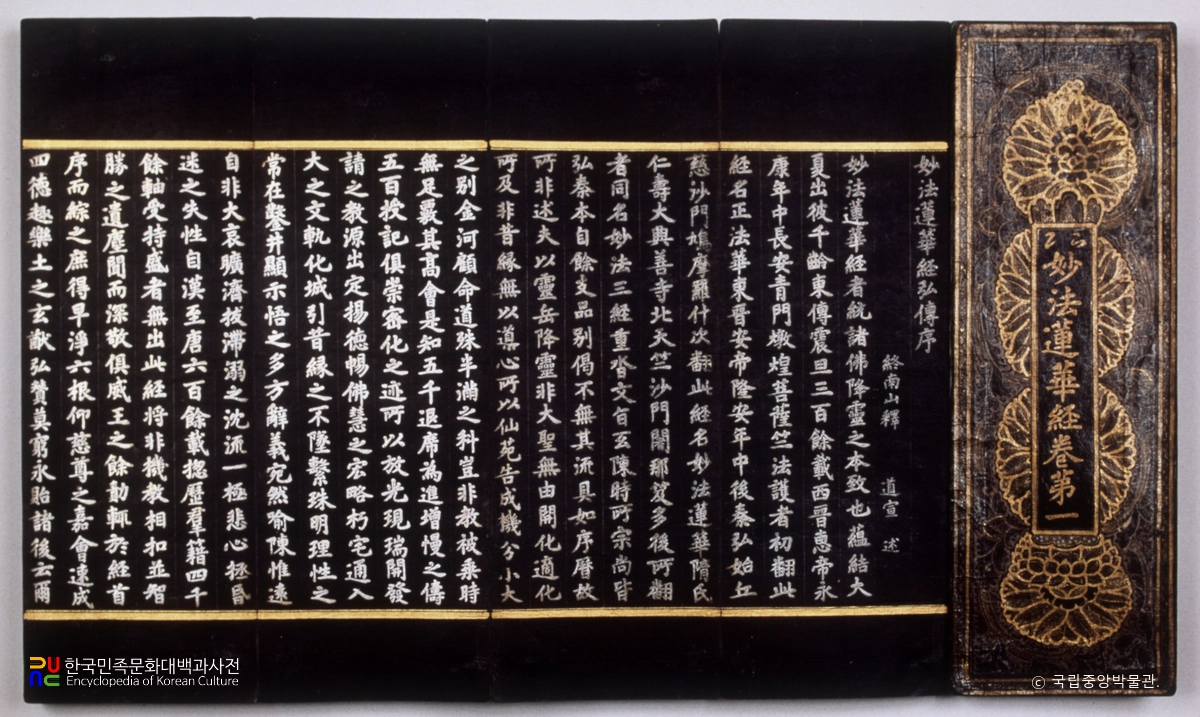 妙法蓮華經卷第一
妙法蓮華經弘傳序
終南山釋 道宣 述
妙法蓮華經者統諸佛降靈之本致也蘊結大
夏出彼千齡東傳震旦三百餘載西晉惠帝永
康年中長安青門燉煌菩薩竺法護者初翻此
經名正法華東晉安帝隆安年中後秦弘始丘
慈沙門鳩摩羅什次翻此經名妙法蓮華隋氏
仁壽大興善寺北天竺沙門闍那笈多後所翻
者同名妙法三經重沓文旨互陳時所宗尚皆
弘秦本自餘支品別偈不無其流具如序曆故
所非述夫以靈岳降靈非大聖無由開化適化
所及非昔緣無以導心所以仙苑告成機分小大
之別金河顧命道殊半滿之科豈非教被乘時
無足覈其高會是知五千退席為進增慢之儔
五百授記俱崇密化之迹所以放光現瑞開發
請之教源出定揚德暢佛慧之宏略朽宅通入
大之文軌化城引昔緣之不墜繫珠明理性之
常在鑿井顯示悟之多方辭義宛然喻陳惟遠
自非大哀曠濟拔滯溺之沈流一極悲心拯昏
迷之失性自漢至唐六百餘載揔歷羣籍四千
餘軸受持盛者無出此經將非機教相扣並智
勝之遺塵聞而深敬俱威王之餘勣輒於經首
序而綜之庶得早淨六根仰慈尊之嘉會速成
四德趣樂土之玄猷弘贊莫窮永貽諸後云爾
한국민족문화대백과사전
Encyclopedia of Korean Culture
© 국립중앙박물관.